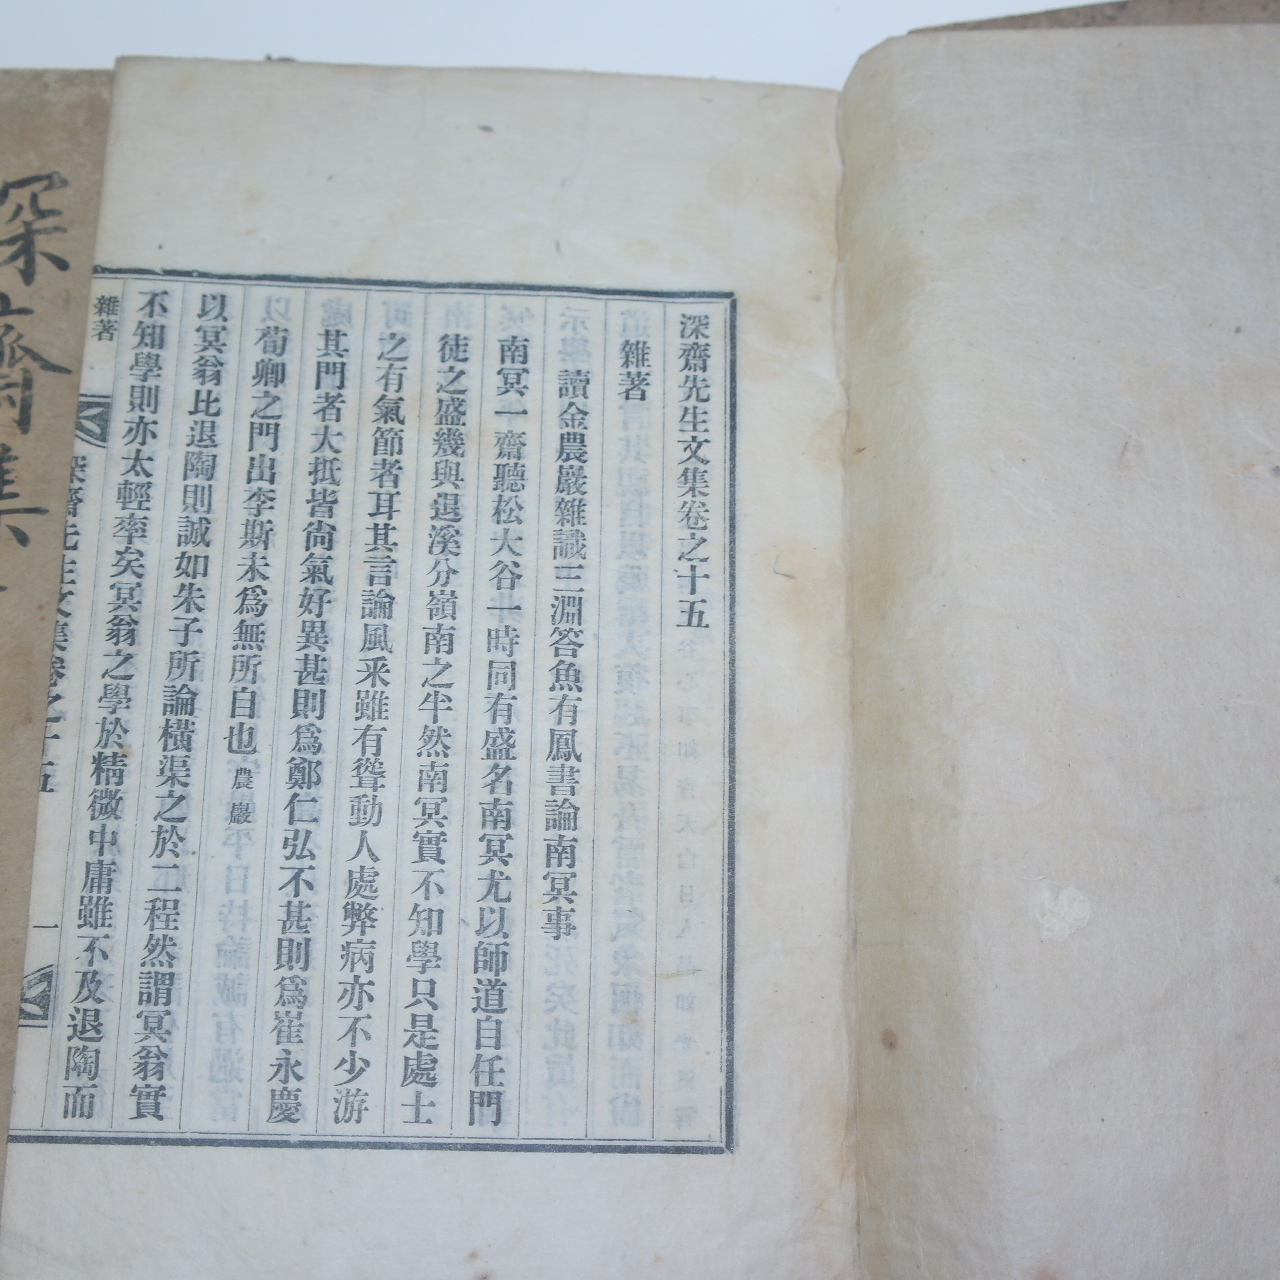 深齋先生文集卷之十五
雜著
讀金農巖雜識三淵答魚有鳳書論南冥事
南冥一齋聽松大谷一時同有盛名南冥尤以師道自任門
徒之盛幾與退溪分嶺南之半然南冥實不知學只是處士
之有氣節者耳其言論風采雖有聳動人處弊病亦不少游
其門者大抵皆尙氣好異甚則爲鄭仁弘不甚則爲崔永慶
荀卿之門出李斯未爲無所自也農巖
以冥翁比退陶則誠如朱子所論橫渠之於二程然謂冥翁實
不知學則亦太輕率矣冥翁之學於精微中庸雖不及退陶而
雜著
深齋先生文集卷之十五
一
深齋集